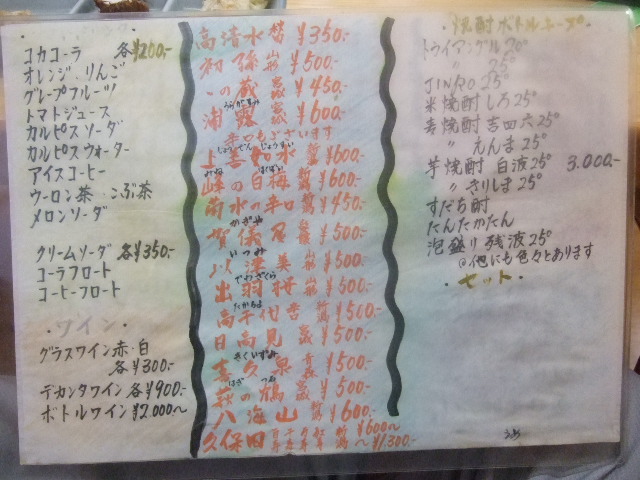 コカコーラ 各¥200-
オレンジ・りんご
グレープフルーツ
トマトジュース
カルピスソーダ
カルピスウォーター
アイスコーヒー
ウーロン茶・こぶ茶
メロンソーダ
クリームソーダ 各¥350-
コーラフロート
コーヒーフロート
・ワイン・
グラスワイン赤・白
各¥300-
デカンタワイン 各¥900-
ボトルワイン ¥2,000~
高清水 ¥350-
初孫 ¥500-
一の蔵 ¥450-
浦霞 ¥600-
辛口もございます
上善如水 ¥600-
峰の白梅 ¥600-
菊水の辛口 ¥450
賀儀屋 ¥500-
いつみ
出羽桜 ¥500-
でわざくら
高千代 ¥500-
たかちよ
日高見 ¥500-
喜久泉 ¥500-
きくいずみ
萩の鶴 ¥500-
はぎ つる
八海山 ¥600-
久保田 ¥600~
~¥1,300-
・焼酎ボトルキープ・
トライアングル 20°
〃 25°
JINRO 25°
米焼酎 しろ 25°
麦焼酎 吉四六 25°
〃 えんま 25°
芋焼酎 白波 25° 3,000-
〃 きりしま 25°
すだち酎
たんたかたん
泡盛り 残波 25°
@他にも色々とあります
・セット・